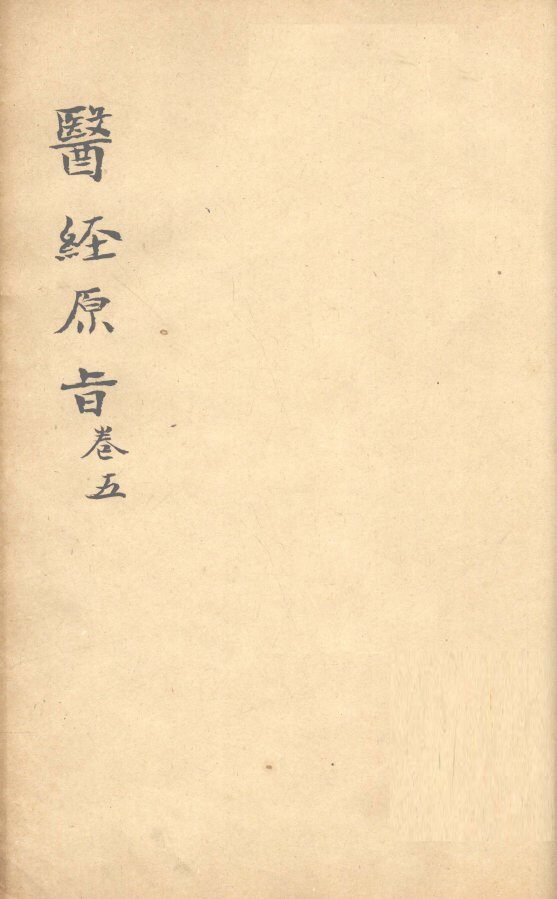 醫經原旨卷五